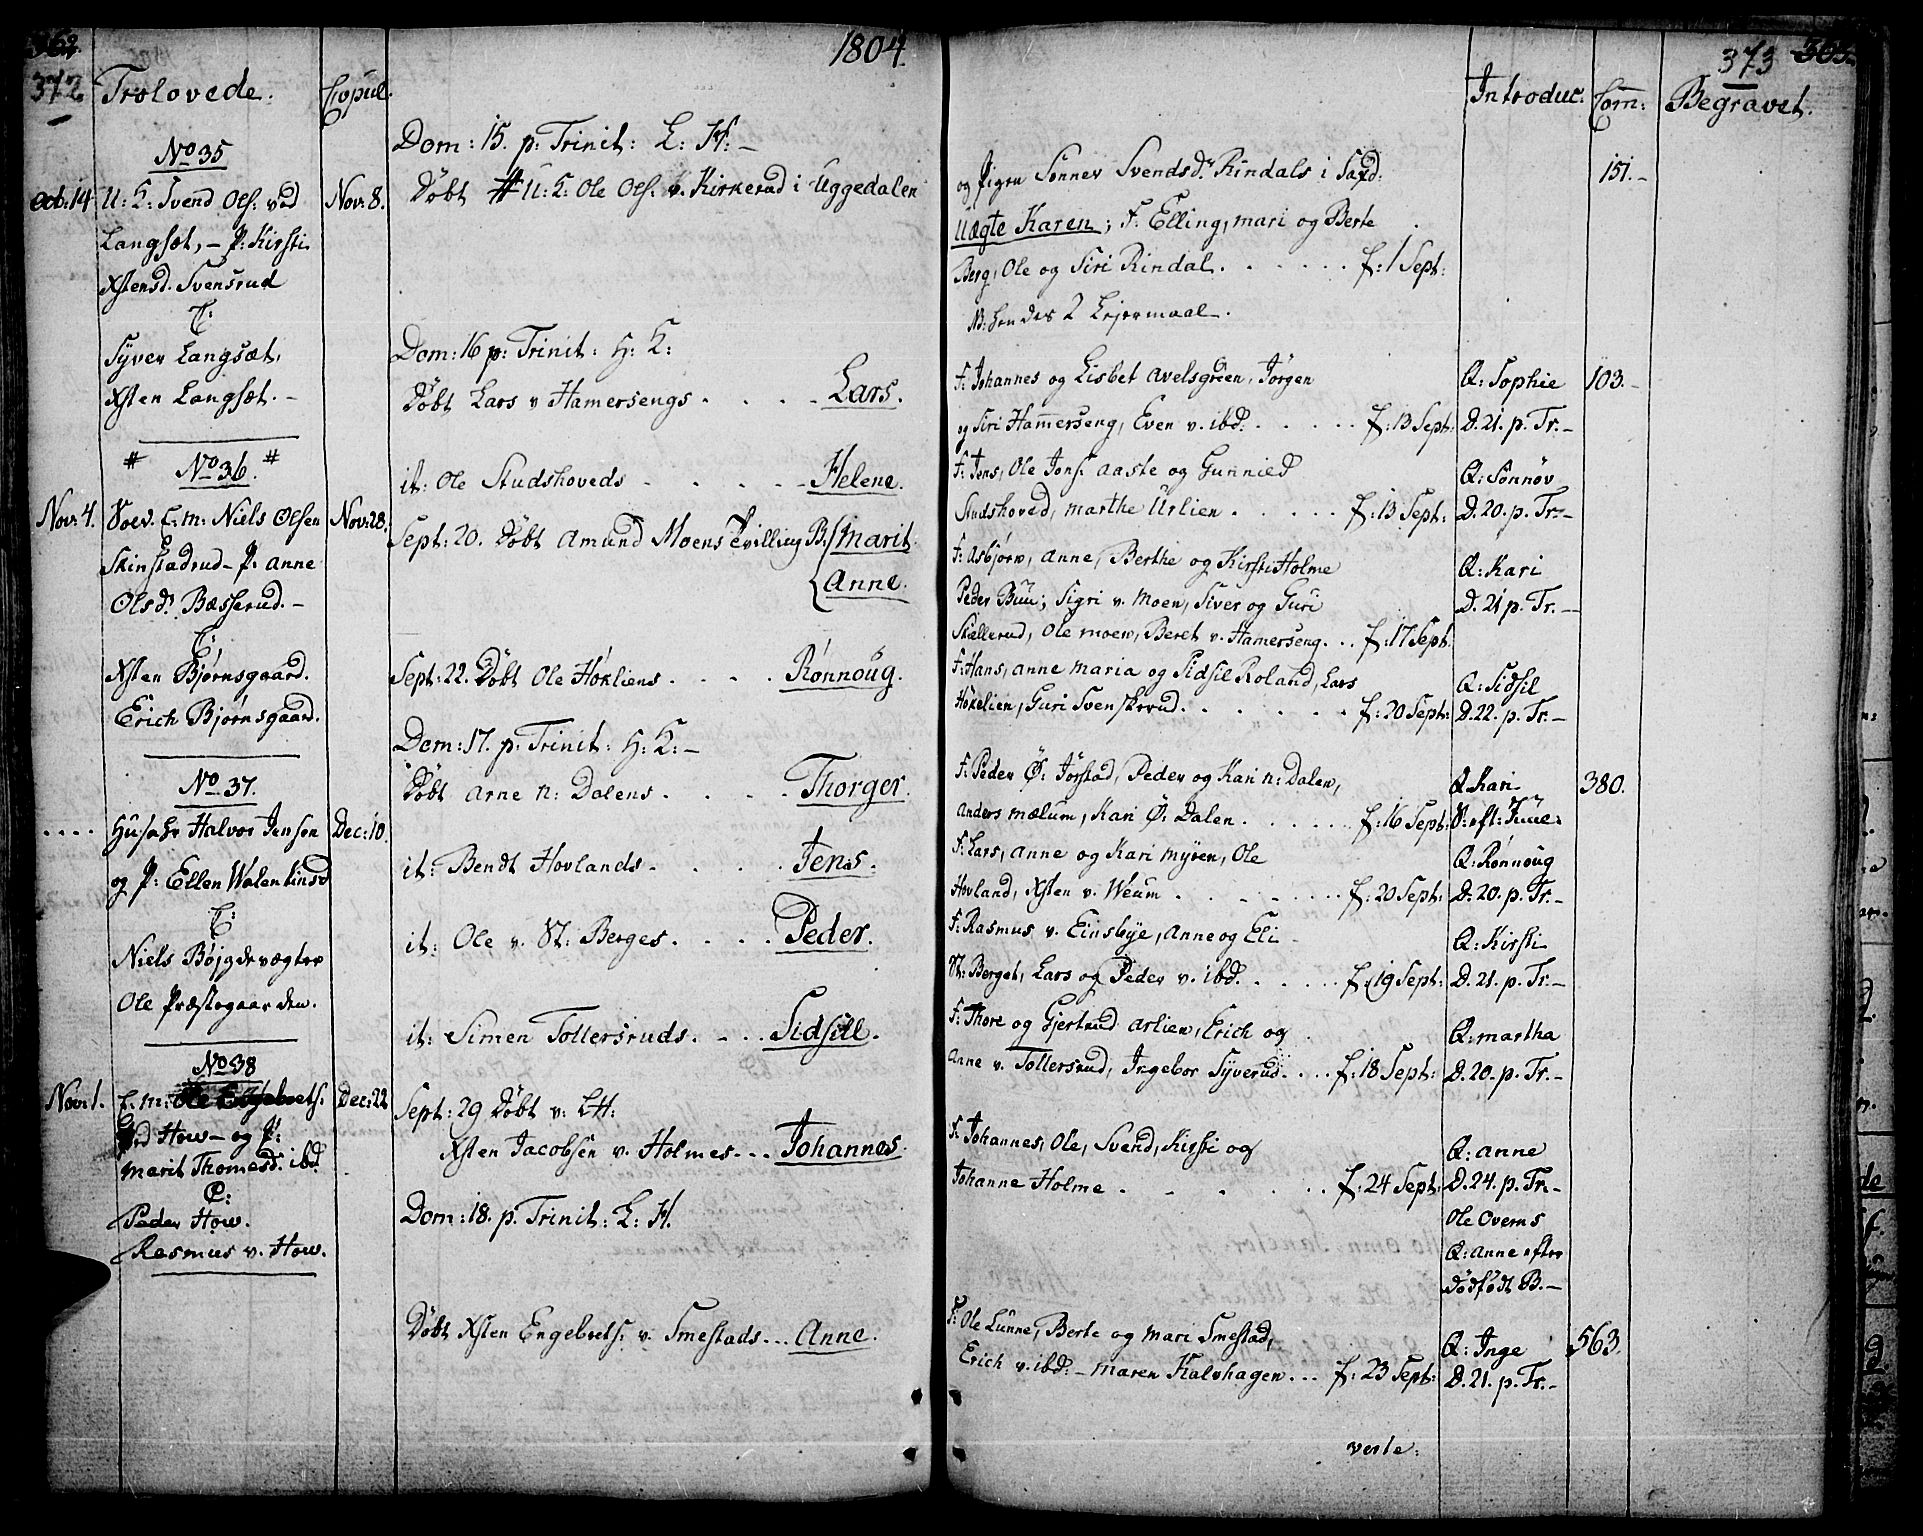 362.
372
Trolovede.
Copul.
1804.
No 35
Oct: 14
U: K: Svend Ols: ved
Nov: 8.
Langsæt, - P: Kirsti
Xstensd. Svensrud
C:
Syver Langsæt,
Xsten Langsæt. -
# No 36. #
Nov: 4.
E. m: Niels Olsen
Nov: 28.
Skinstadrud - P: Anne
Olsd. Bæsserud. -
C:
Xsten Bjørnsgaard.
Erich Bjørnsgaard.
No 37.
. . . .
Halvor Jensen
Dec: 10.
og P: Ellen Walentinsd
C:
Niels Bøjgdevægter
Ole Præstegaarden.
No 38
Nov: 1.
E. m: Ole Engebrets:
Dec: 22
ved How - og P:
Marit Thomesd. ibd
C:
Peder How.
Rasmus v. How.
Dom: 15. p: Trinit: L: H: -
Døbt # U: K: Ole Ols: v. Kirkerud i Uggedalen
Dom: 16 p: Trinit: H: K:
Døbt Lars v Hamersengs . . . . Lars.
it: Ole Studshoveds - . . . . - Helene.
Sept: 20. Døbt Amund Moens Tvilling B: { Marit.
{ Anne.
Sept: 22. Døbt Ole Høkliens . . . . Rønnoug.
Dom: 17. p: Trinit: H: K: -
Døbt Arne n: Dalens . . . . Thorger.
it: Bendt Hovlands . . . . Jens.
it: Ole v. St: Berges . . . . Peder.
it: Simen Tollersruds . . . . Sidsill.
Sept: 29 Døbt v: LH:
Xsten Jacobsen v. Holmes . . . Johannes.
Dom: 18. p. Trinit: L: H.
Døbt Xsten Engebrets: v. Smestads . . . Anne.
373
363.
Introduc:
Com:
Begravet.
og Pigen Sønnev Svendsd. Rindals i Faxd:
151. -
Uægte Karen; F: Elling, Mari og Berte
Berg, Ole og Siri Rindal . . . . . f: 1 Sept:
NB: hendes 2 Lejermaal -.
F: Johannes og Lisbet Avelsgreen, Jørgen
Q: Sophie
103. -
og Siri Hamerseng, Even v. ibd: . . . . . f: 13 Sept:
D. 21. p. Tr. -
F: Jens, Ole Jons: Aaste og Gunnild
Q: Sønnøv
Studshoved, Marthe Urlien . . . . . f: 13 Sept:
D. 20. p. Tr: -
F: Asbjørn, Anne, Berthe og Kirsti Holme
Q: Kari
Peder Buu; Sigri v. Moen, Siver og Guri
D. 21 p. Tr. -
Skellerud, Ole Moen, Beret v. Hamerseng . . f: 17 Sept:
F: Hans, Anne Maria og Sidsil Roland, Lars
Q: Sidsil
Høkelien, Guri Svenskrud . . . . . f: 20 Sept:
D. 22. p. Tr. -
F: Peder Ø: Jørstad, Peder og Kari n: Dalen,
Q Kari
380.
Anders Mælum, Kari Ø: Dalen . . . . . f: 16 Sept:
S: eft: Juul.
F: Lars, Anne og Kari Myren, Ole
Q: Rønnoug
Hovland, Xsten v. Weum . . . . . f: 20 Sept:
D. 20. p. Tr. -
F: Rasmus v. Einsbye, Anne og Eli
Q: Kirsti
St: Berget, Lars og Peder v. ibd . . . . . f: 19 Sept:
D. 21. p. Tr. -
F: Thore og Gjertrud Arlien, Erich og
Q: Martha
Anne v. Tollersrud, Ingebor Syverud . . . f: 18 Sept:
D. 20. p. Tr. -
F: Johannes, Ole, Svend, Kirsti og
Q: Anne
Johanne Holme . . . . . f: 24 Sept:
D. 24. p. Tr. -
Ole Overns
Q: Anne efter
dødfødt B. -
F: Ole Lunne, Berte og Mari Smestad,
Q: Inge
563.
Erich v. ibd: - Maren Kalvhagen . . . f: 23 Sept:
D. 21. p. Tr. -
verte: